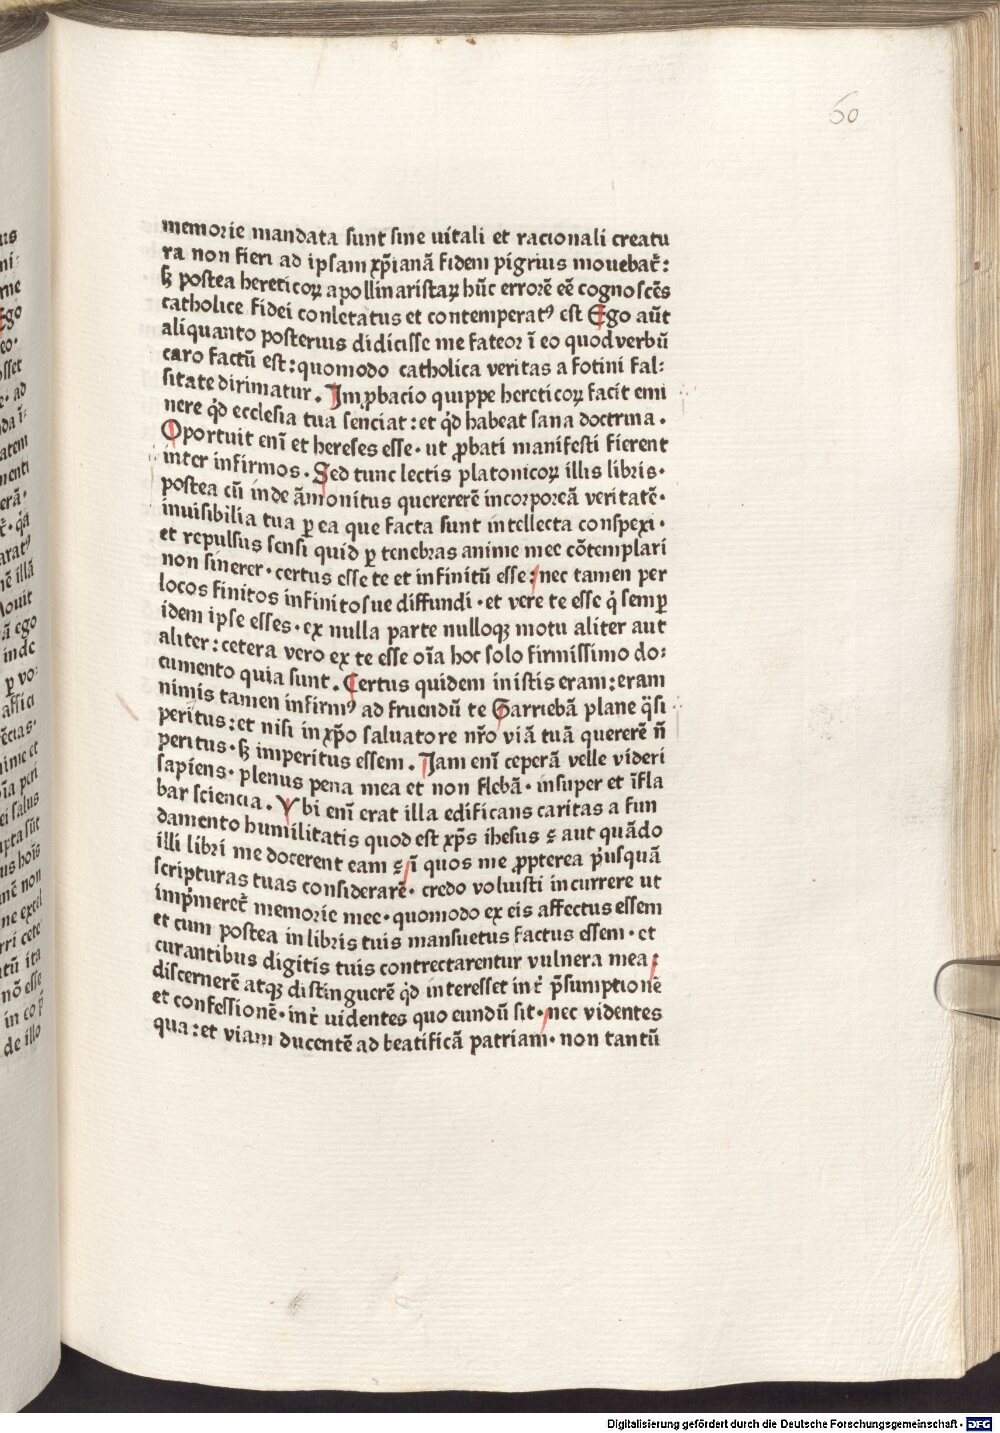 60
memorie mandata sunt sine uitali et racionali creatu
ra non fieri ad ipsam xp̄ianā fidem pigrius mouebat᷑:
sꝫ postea hereticoꝝ apollinaristaꝝ hūc errorē eē cognoscēs
catholice fidei conletatus et contemperatꝰ est Ego aūt
aliquanto posterius didicisse me fateor ī eo quod verbū
caro factū est: quomodo catholica veritas a fotini fal:
sitate dirimatur. Imꝓbacio quippe hereticoꝝ facit emi
nere qd̓ ecclesia tua senciat: et qd̓ habeat sana doctrina.
Oportuit enī et hereses esse· ut ꝓbati manifesti fierent
inter infirmos. Sed tunc lectis platonicoꝝ illis libris·
postea cū inde āmonitus quererērē incorporeā veritatē·
inuisibilia tua ꝑ ea que facta sunt intellecta conspexi·
et repulsus sensi quid ꝑ tenebras anime mee cōtemplari
non sinerer· certus esse te et infinitū esse: nec tamen per
locos finitos infinitosue diffundi· et vere te esse q̇ semꝑ
idem ipse esses· ex nulla parte nulloqꝫ motu aliter aut
aliter: cetera vero ex te esse oīa hoc solo firmissimo do:
cumento quia sunt. Certus quidem in istis eram: eram
nimis tamen infirmꝰ ad fruendū te Garriebā plane q̄si
peritus: et nisi in xp̄o saluatore nr̄o viā tuā quererē n̄
peritus· sꝫ imperitus essem. Jam enī ceperā velle videri
sapiens· plenus pena mea et non flebā· insuper et īfla
bar sciencia. Vbi enī erat illa edificans caritas a fun
damento humilitatis quod est xp̄s ihesus ? aut quādo
illi libri me docerent eam ? ī quos me ꝓpterea p̓usquā
scripturas tuas considerarē· credo voluisti incurrere ut
imp̓meret᷑ memorie mee· quomodo ex eis affectus essem
et cum postea in libris tuis mansuetus factus essem· et
curantibus digitis tuis contrectarentur vulnera mea:
discernerē atqꝫ distinguerē qd̓ interesset int᷑ p̄sumptionē
et confessionē· int᷑ uidentes quo eundū sit· nec videntes
qua: et viam ducentē ad beatificā patriam· non tantū
Digitalisierung gefördert durch die Deutsche Forschungsgemeinschaft - DFG